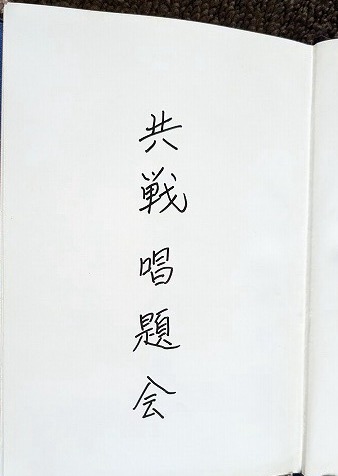 共戦唱題会